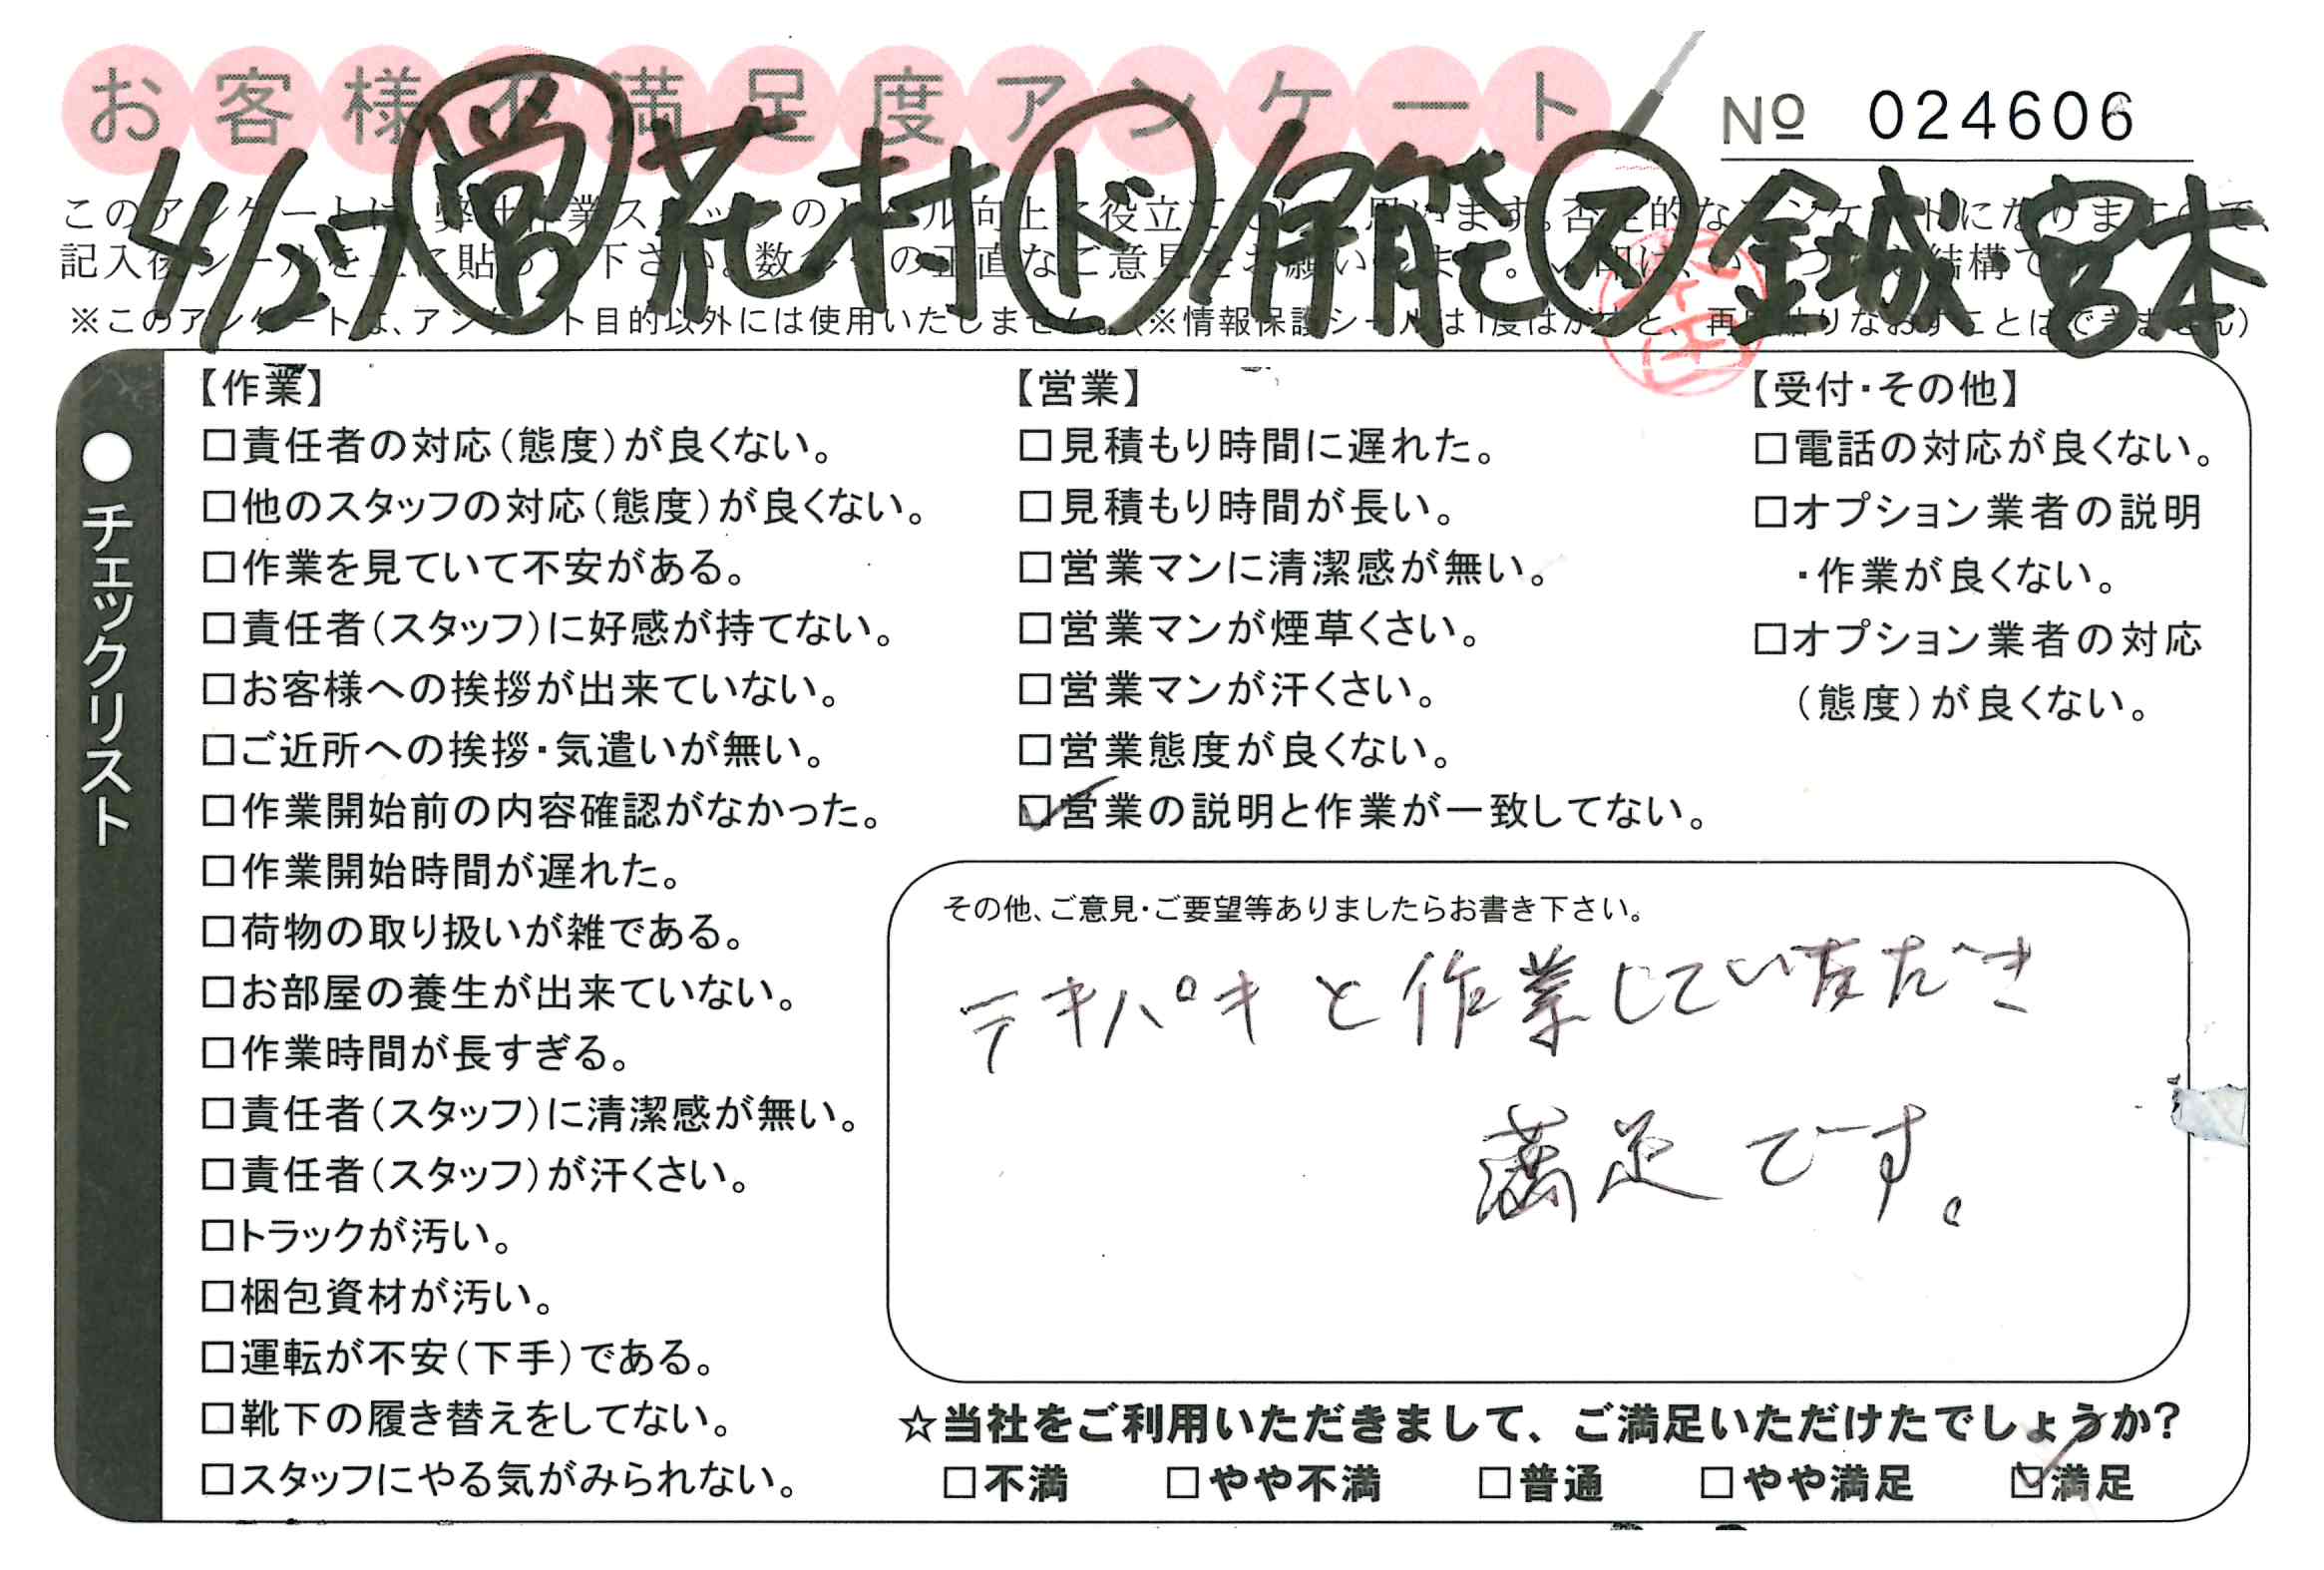 お客様不満足度アンケート
№ 024606
4/27 営 花村 ド 伊能 ス 金城 宮本
※このアンケートは、アンケート目的以外には使用いたしません。(※情報保護シールは1度はがすと、再度貼りなおすことはできません)
●チェックリスト
【作業】
□責任者の対応(態度)が良くない。
□他のスタッフの対応(態度)が良くない。
□作業を見ていて不安がある。
□責任者(スタッフ)に好感が持てない。
□お客様への挨拶が出来ていない。
□ご近所への挨拶・気遣いが無い。
□作業開始前の内容確認がなかった。
□作業開始時間が遅れた。
□荷物の取り扱いが雑である。
□お部屋の養生が出来ていない。
□作業時間が長すぎる。
□責任者(スタッフ)に清潔感が無い。
□責任者(スタッフ)が汗くさい。
□トラックが汚い。
□梱包資材が汚い。
□運転が不安(下手)である。
□靴下の履き替えをしてない。
□スタッフにやる気がみられない。
【営業】
□見積もり時間に遅れた。
□見積もり時間が長い。
□営業マンに清潔感が無い。
□営業マンが煙草くさい。
□営業マンが汗くさい。
□営業態度が良くない。
☑営業の説明と作業が一致してない。
【受付・その他】
□電話の対応が良くない。
□オプション業者の説明
・作業が良くない。
□オプション業者の対応
(態度)が良くない。
その他、ご意見・ご要望等ありましたらお書き下さい。
テキパキと作業していただき
満足です。
☆当社をご利用いただきまして、ご満足いただけたでしょうか?
□不満 □やや不満 □普通 □やや満足 ☑満足